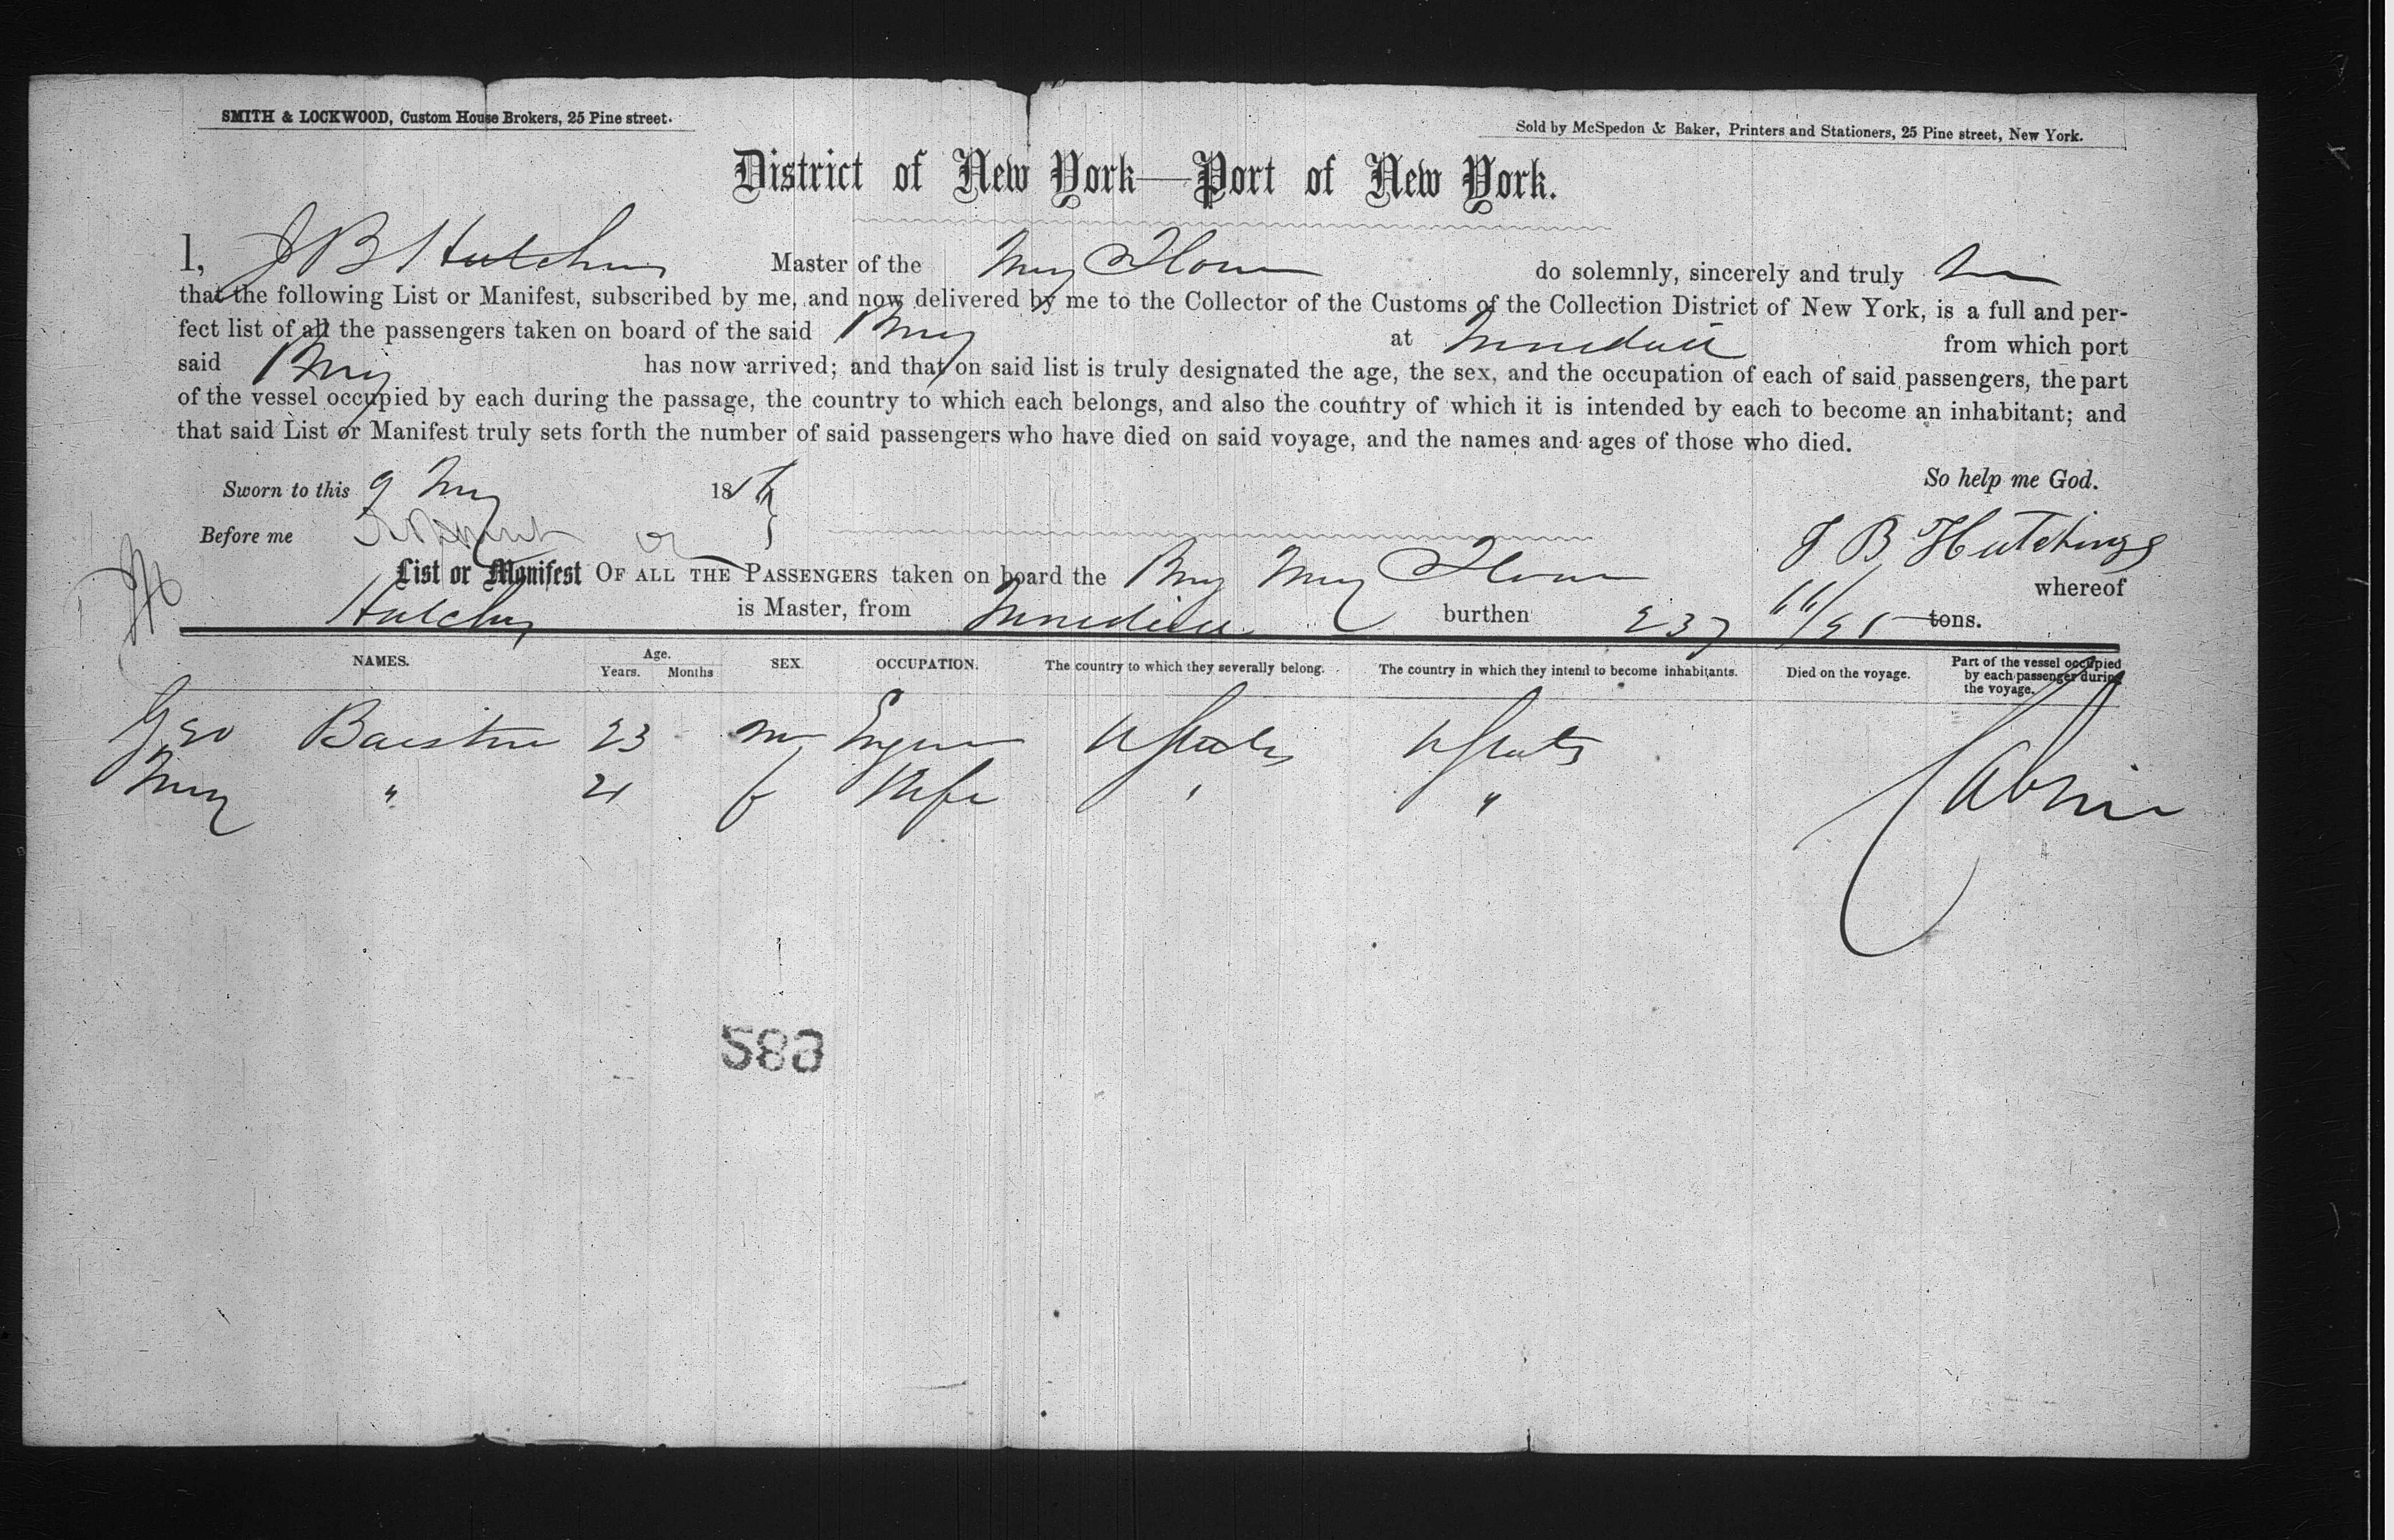 SMITH & LOCKWOOD, Custom House Brokers, 25 Pine street.
Sold by McSpedon & Baker, Printers and Stationers, 25 Pine street, New York.
District of New York—Port of New York.
I, J B Hutchins Master of the May Flower do solemnly, sincerely and truly
that the following List or Manifest, subscribed by me, and now delivered by me to the Collector of the Customs of the Collection District of New York, is a full and per-
fect list of all the passengers taken on board of the said Brig at from which port
said Brig has now arrived; and that on said list is truly designated the age, the sex, and the occupation of each of said passengers, the part
of the vessel occupied by each during the passage, the country to which each belongs, and also the country of which it is intended by each to become an inhabitant; and
that said List or Manifest truly sets forth the number of said passengers who have died on said voyage, and the names and ages of those who died.
Sworn to this 9 May 18
So help me God.
Before me
J B Hutchings
List or Manifest OF ALL THE PASSENGERS taken on board the Brig May Flower whereof
Hutchings is Master, from burthen 237 66/95 tons.
NAMES. Age. Years. Months SEX. OCCUPATION. The country to which they severally belong. The country in which they intend to become inhabitants. Died on the voyage. Part of the vessel occupied by each passenger during the voyage.
Geo 23 m U States U States
" 21 f Wife " "
Cabin
583